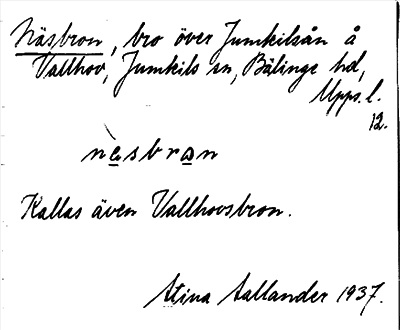 Näsbron, bro över Jumkilsån å
Vallhov, Jumkils sn, Bälinge hd,
Upps. l.
12.
nèsbrɷn
Kallas även Vallhovsbron.
Stina Sallander 1937.